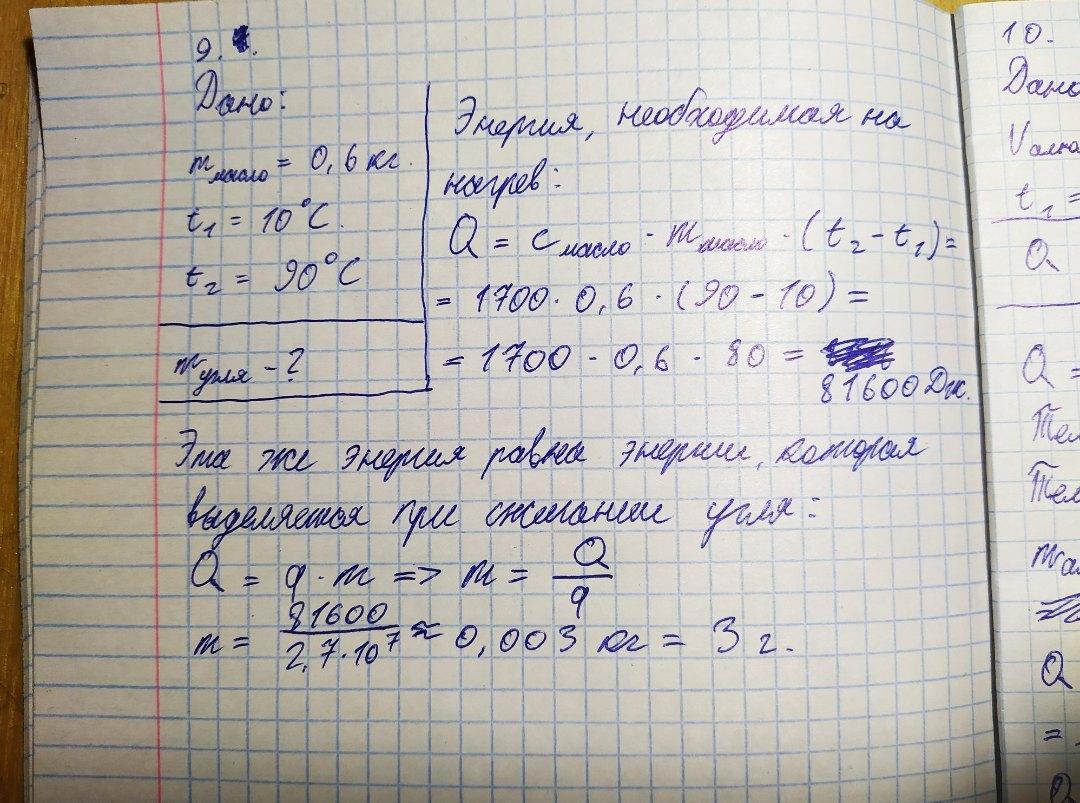 9.
Дано:
m масло = 0,6 кг.
t₁ = 10°C.
t₂ = 90°C
m угля - ?
Энергия, необходимая на
нагрев:
Q = c масло · m масло · (t₂ - t₁) =
= 1700 · 0,6 · (90 - 10) =
= 1700 · 0,6 · 80 =
81600 Дж.
Эта же энергия равна энергии, которая
выделяется при сжигании угля:
Q = q · m => m = Q/q
m = 81600/2,7·10⁷ ≈ 0,003 кг = 3 г.
10.
Дано
t₁ =
Q
Q =
Q
=
Q